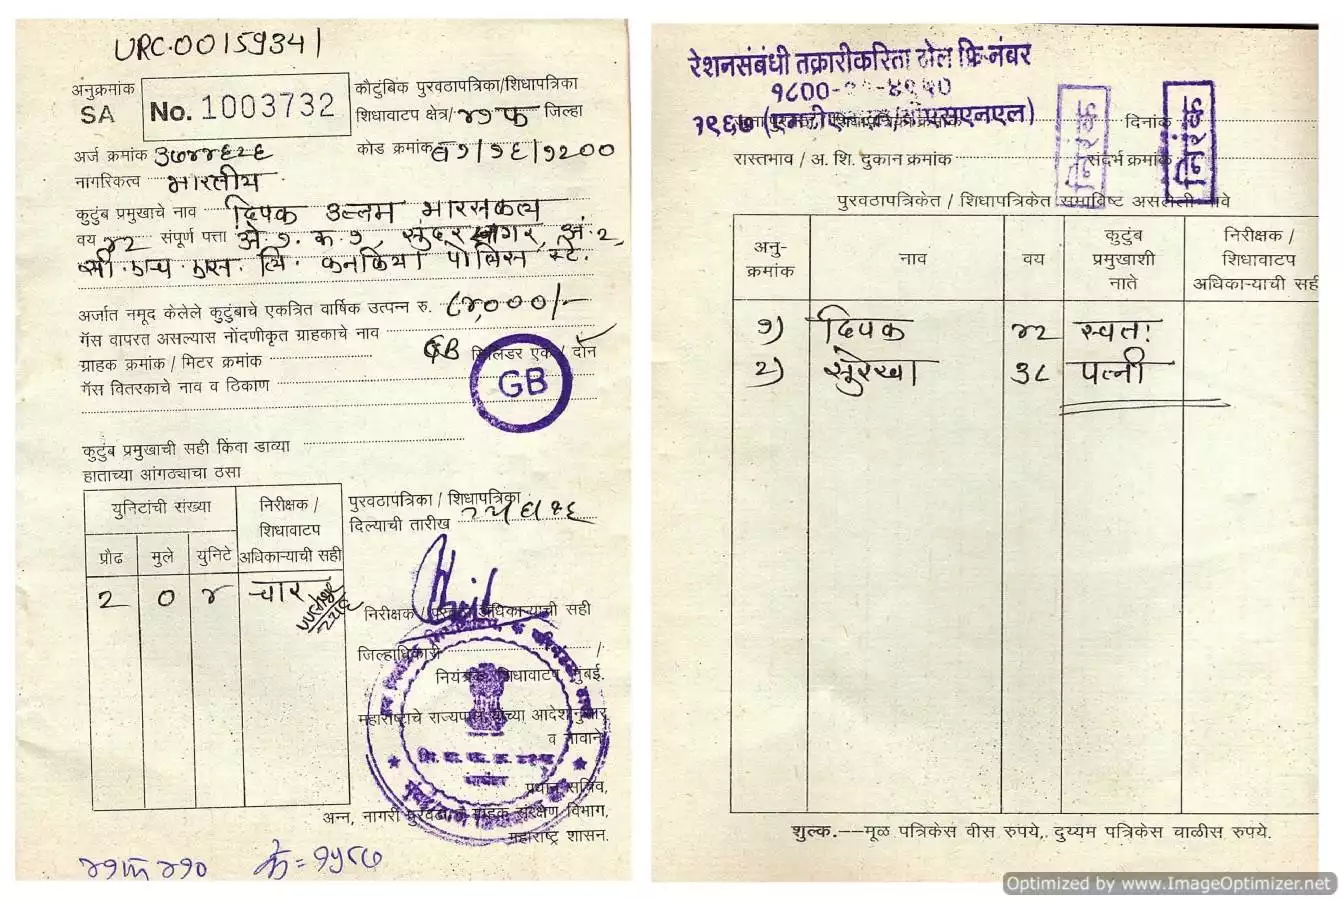 URC.00159341
अनुक्रमांक
SA No. 1003732
कौटुंबिक पुरवठापत्रिका/शिधापत्रिका
शिधावाटप क्षेत्र/ ४१ फ जिल्हा
अर्ज क्रमांक ३७४४६२६
कोड क्रमांक
नागरिकत्व भारतीय
कुटुंब प्रमुखाचे नाव दिपक उत्तम भारसकल्य
वय ४२ संपूर्ण पत्ता ओ.१. क.१, सुंदर सागर, अं.2,
सी.एच.एस. लि. कनकिया पोलिस स्टे.
अर्जात नमूद केलेले कुटुंबाचे एकत्रित वार्षिक उत्पन्न रु. ८४,०००/-
गॅस वापरत असल्यास नोंदणीकृत ग्राहकाचे नाव
ग्राहक क्रमांक / मिटर क्रमांक GB सिलिंडर एक / दोन
गॅस वितरकाचे नाव व ठिकाण
GB
कुटुंब प्रमुखाची सही किंवा डाव्या
हाताच्या आंगठ्याचा ठसा
युनिटांची संख्या निरीक्षक /
शिधावाटप
प्रौढ मुले युनिटे अधिकाऱ्याची सही
2 0 ४ चार
पुरवठापत्रिका / शिधापत्रिका
दिल्याची तारीख
निरीक्षक / पुरवठा अधिकाऱ्याची सही
जिल्हाधिकारी /
नियंत्रक शिधावाटप मुंबई.
महाराष्ट्राचे राज्यपाल यांच्या आदेशानुसार
व नावाने
प्रधान सचिव,
अन्न, नागरी पुरवठा व ग्राहक संरक्षण विभाग,
महाराष्ट्र शासन.
रेशनसंबंधी तक्रारीकरिता टोल फ्रि-नंबर
१८00-
१९६७ (एमटीएनएल, बीएसएनएल)
दिनांक
रास्तभाव / अ. शि. दुकान क्रमांक संदर्भ क्रमांक
निरंक
निरंक
पुरवठापत्रिकेत / शिधापत्रिकेत समाविष्ट असलेली नावे
अनु-
क्रमांक
नाव
वय
कुटुंब
प्रमुखाशी
नाते
निरीक्षक /
शिधावाटप
अधिकाऱ्याची सही
१) दिपक ४२ स्वतः
2) सुरेखा ३८ पत्नी
शुल्क.---मूळ पत्रिकेस वीस रुपये, दुय्यम पत्रिकेस चाळीस रुपये.
Optimized by www.ImageOptimizer.net